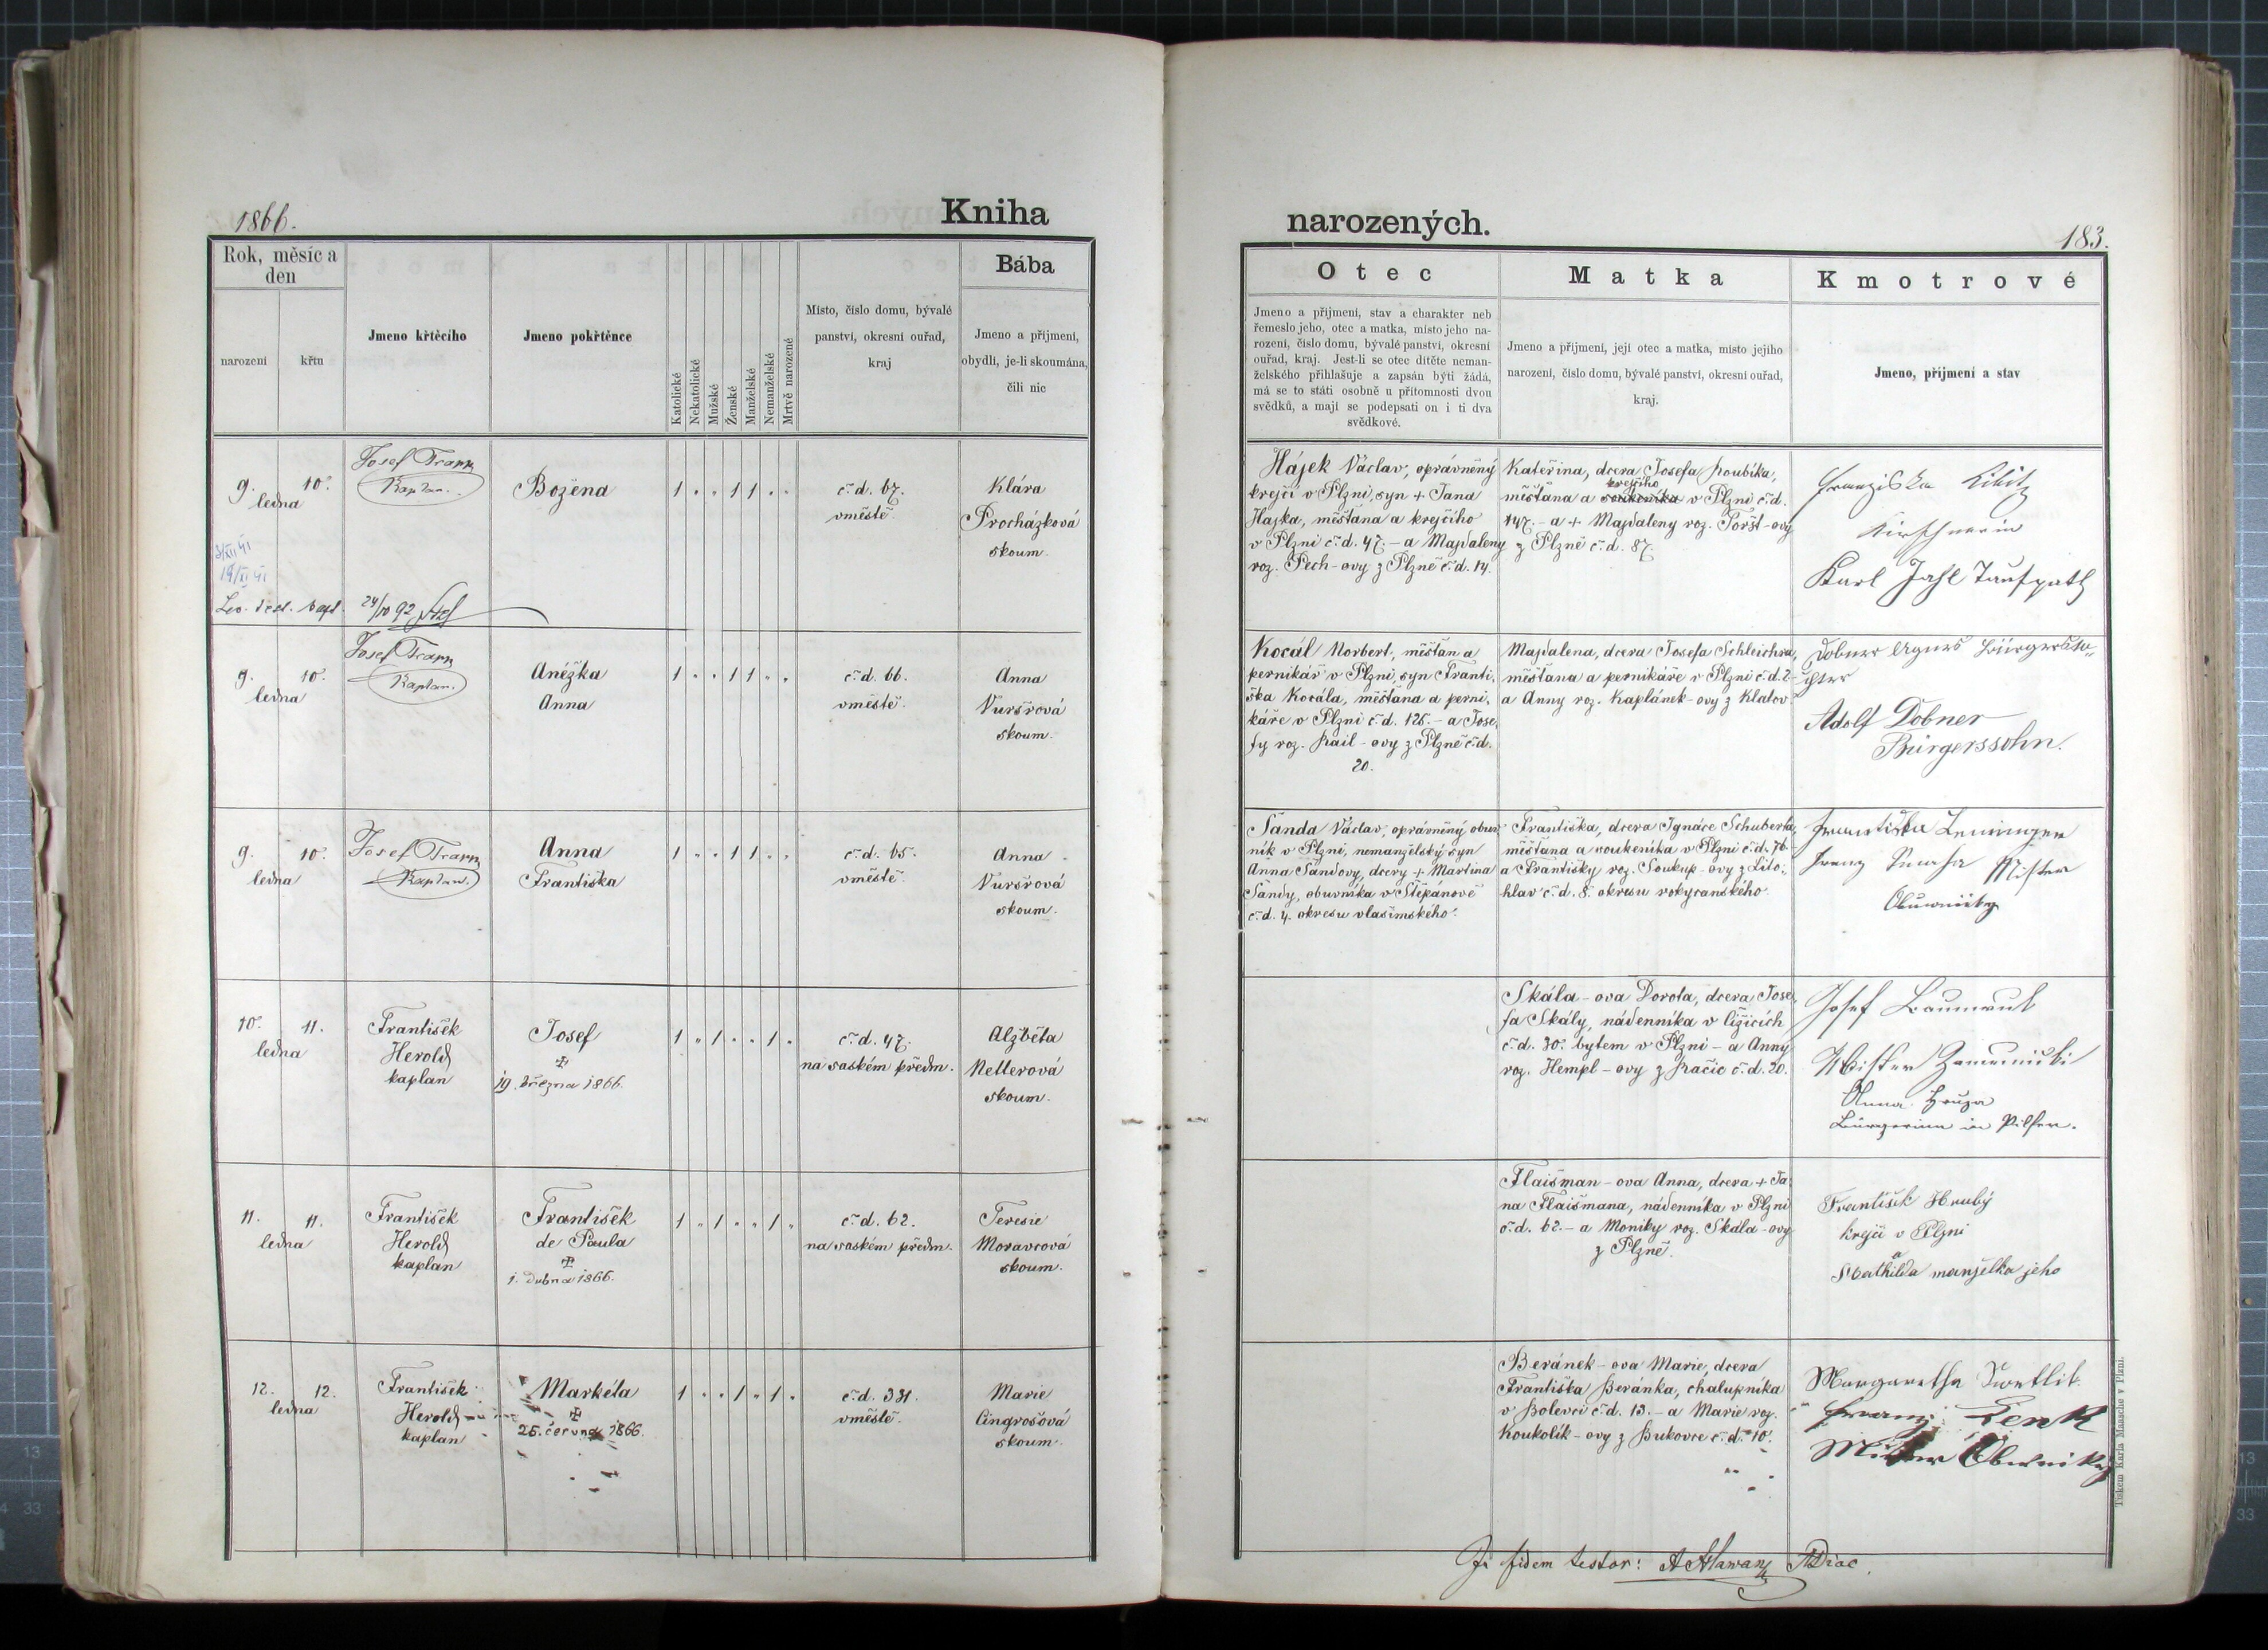 1866.
Kniha
Rok, měsíc a
den
narození
křtu
Jmeno křtěcího
Jmeno pokřtěnce
Katolické
Nekatolické
Mužské
Ženské
Manželské
Nemanželské
Mrtvě narozené
Místo, číslo domu, bývalé
panství, okresní ouřad,
kraj
Bába
Jmeno a příjmení,
obydlí, je-li skoumána,
čili nic
9. 10.
ledna
Josef Trapp
Kaplan.
Božena
1 " " 1 1 " "
č. d. 67.
v městě.
Klára
Procházková
skoum.
24/10 92
9. 10.
ledna
Josef Trapp
Kaplan.
Anéžka
Anna
1 " " 1 1 " "
č. d. 66.
v městě.
Anna
Vuršrová
skoum.
9. 10.
ledna
Josef Trapp
Kaplan.
Anna
Františka
1 " " 1 1 " "
č. d. 65.
v městě.
Anna
Vuršrová
skoum.
10. 11.
ledna
František
Herold
kaplan
Josef
✠
19. března 1866.
1 " 1 " " 1 "
č. d. 47.
na saském předm.
Alžběta
Nellerová
skoum.
11. 11.
ledna
František
Herold
kaplan
František
de Paula
✠
1. dubna 1866.
1 " 1 " " 1 "
č. d. 62.
na saském předm.
Teresie
Moravcová
skoum.
12. 12.
ledna
František
Herold
kaplan
Markéta
✠
25. června 1866.
1 " " 1 " 1 "
č. d. 331.
v městě.
Marie
Cingrošová
skoum.
narozených.
183.
Otec
Jmeno a příjmení, stav a charakter neb
řemeslo jeho, otec a matka, místo jeho na-
rození, číslo domu, bývalé panství, okresní
ouřad, kraj. Jest-li se otec dítěte neman-
želského přihlašuje a zapsán býti žádá,
má se to státi osobně u přítomnosti dvou
svědků, a mají se podepsati on i ti dva
svědkové.
Matka
Jmeno a příjmení, její otec a matka, místo jejího
narození, číslo domu, bývalé panství, okresní ouřad,
kraj.
Kmotrové
Jmeno, příjmení a stav
Hájek Václav, oprávněný
krejčí v Plzni, syn + Jana
Hajka, měšťana a krejčího
v Plzni č. d. 47. - a Majdaleny
roz. Pech-ovy z Plzně č. d. 14.
Kateřina, dcera Josefa Koubíka,
krejčího
měšťana a soukeníka v Plzni č. d.
147. - a + Majdaleny roz. Foršt-ovy
z Plzně č. d. 87.
Franziska
Kirschnerin
Karl Jahl Taufpath
Kocál Norbert, měšťan a
pernikář v Plzni, syn Franti-
ška Kocála, měšťana a perni-
káře v Plzni č. d. 125. - a Jose-
fy roz. Kail-ovy z Plzně č. d.
20.
Majdalena, dcera Josefa Schleichra,
měšťana a pernikáře v Plzni č. d. 2-
a Anny roz. Kaplánek-ovy z Klatov.
Dobner Agnes Bürgersto-
chter
Adolf Dobner
Bürgerssohn.
Šanda Václav, oprávněný obuv-
ník v Plzni, nemanželský syn
Anna Šandovy, dcery + Martina
Šandy, obuvníka v Štěpánově
č. d. 4. okresu vlašimského.
Františka, dcera Ignáce Schuberta,
měšťana a soukeníka v Plzni č. d. 76-
a Františky roz. Soukup-ovy z Lito-
hlav č. d. 8. okresu rokycanského.
Františka Leninger
Franz Mister
Obuwnicky
Skála-ova Dorota, dcera Jose-
fa Skály, nádenníka v Ližicích
č. d. 30. bytem v Plzni - a Anny
roz. Hempl-ovy z Račic č. d. 20.
Josef Baumruk
Mister Zamecnicki
Anna Hruza
Bürgerinn in Pilsen.
Flaišman-ova Anna, dcera + Ja-
na Flaišmana, nádenníka v Plzni
č. d. 62. - a Moniky roz. Skála-ovy
z Plzně.
František Hrubý
krejčí v Plzni
a
Mathilda manželka jeho
Beránek-ova Marie, dcera
Františka Beránka, chalupníka
v Bolevci č. d. 13. - a Marie roz.
Koukolík-ovy z Bukovce č. d. 10.
Margaretha
Franz Fenk
Mister Obuwnikeg
In fidem testor:
Tiskem Karla Maascha v Plzni.